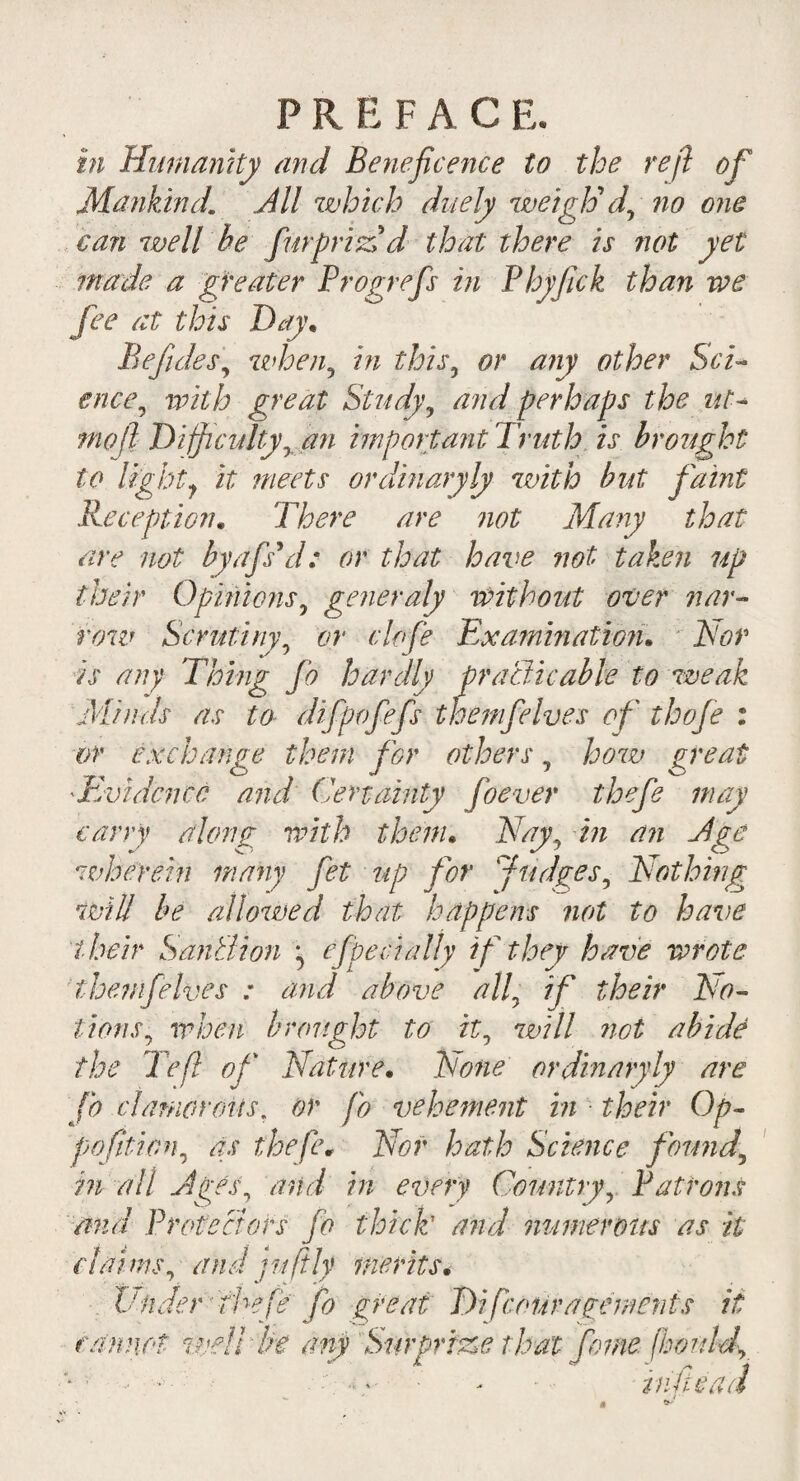 PREFACE.
in Humanity and Beneficence to the reſt of
Mankind. All which duely weigh'd, no one
can well be ſurpriz'd that there is not yet
made a greater Progreſs in Phyſick than we
ſee at this Day.
Beſides, when, in this, or any other Sci-
ence, with great Study, and perhaps the ut-
moſt Difficulty, an important Truth is brought
to light, it meets ordinaryly with but faint
Reception. There are not Many that
are not byaſs'd: or that have not taken up
their Opinions, generaly without over nar-
row Scrutiny, or cloſe Examination. Nor
is any Thing ſo hardly practicable to weak
Minds as to diſpoſeſs themſelves of thoſe :
or exchange them for others, how great
Evidence and Certainty ſoever theſe may
carry along with them. Nay, in an Age
wherein many ſet up for Judges, Nothing
will be allowed that happens not to have
their Sanction ; eſpecially if they have wrote
themſelves : and above all, if their No-
tions, when brought to it, will not abide
the Teſt of Nature. None ordinaryly are
ſo clamorous, or ſo vehement in their Op-
poſition, as theſe. Nor hath Science found,
in all Ages, and in every Country, Patrons
and Protectors ſo thick and numerous as it
claims, and juſtly merits.
Under theſe ſo great Diſcouragements it
cannot well be any Surprize that ſome ſhould,
inſtead